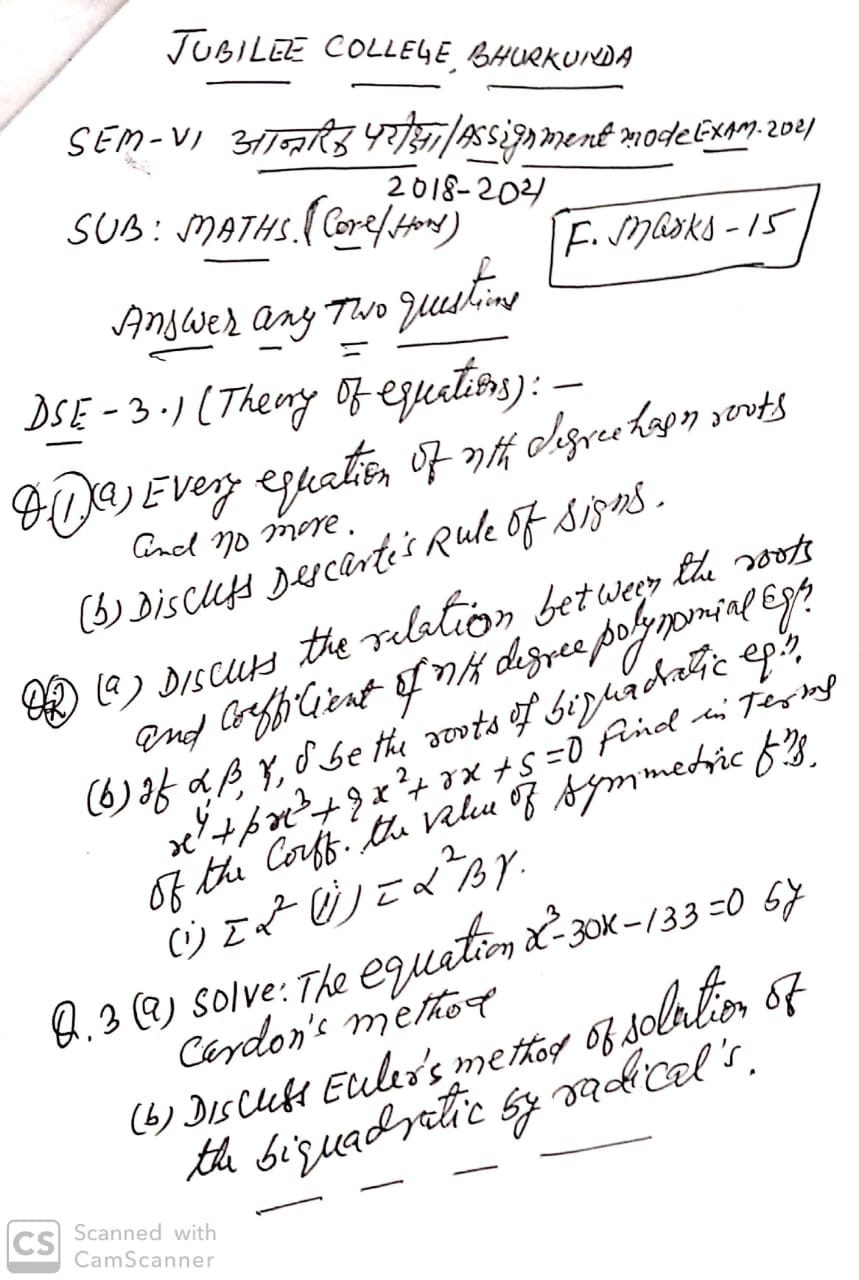 JUBILEE COLLEGE, BHURKUNDA
SEM-VI आन्तरिक परीक्षा/Assignment mode EXAM-2021
2018-2021
SUB: MATHS. (Core/Hons)
F. Marks-15
Answer any Two questions
DSE-3.1 (Theory of equations):-
Q.1.(a) Every equation of nth degree has n roots
and no more.
(b) Discuss Descarte's Rule of signs.
Q2 (a) Discuss the relation between the roots
and Coefficient of nth degree polynomial Eqn.
(b) If α, β, γ, δ be the roots of biquadratic eqn.
x⁴+px³+qx²+rx+s=0 find in Terms
of the Coeff. the value of symmetric fns.
(i) Σα² (ii) Σα²βγ.
Q.3 (a) Solve: The equation x³-30x-133=0 by
Cardon's method
(b) Discuss Euler's method of solution of
the biquadratic by radical's.
CS Scanned with
CamScanner